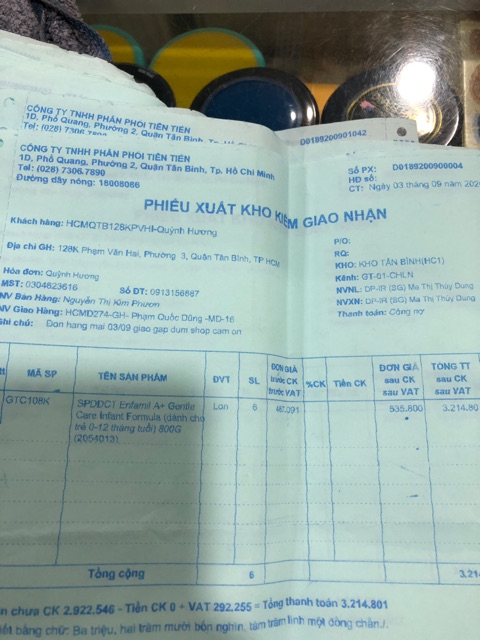 CÔNG TY TNHH PHÂN PHỐI TIÊN TIẾN
1D, Phổ Quang, Phường 2, Quận Tân Bình,
Tel: (028) 7306.7890
D0189200901042
CÔNG TY TNHH PHÂN PHỐI TIÊN TIẾN
1D, Phổ Quang, Phường 2, Quận Tân Bình, Tp. Hồ Chí Minh
Tel: (028) 7306.7890
Đường dây nóng: 18008086
Số PX: D0189200900004
HĐ số:
CT: Ngày 03 tháng 09 năm
PHIẾU XUẤT KHO KIÊM GIAO NHẬN
Khách hàng: HCMQTB128KPVHI-Quỳnh Hương
Địa chỉ GH: 128K Phạm Văn Hai, Phường 3, Quận Tân Bình, TP HCM
Hóa đơn: Quỳnh Hương
MST: 0304623616 Số ĐT: 0913156687
NV Bán Hàng: Nguyễn Thị Kim Phượn
NV Giao Hàng: HCMD274-GH- Phạm Quốc Dũng -MD-16
Ghi chú: Đon hang mai 03/09 giao gap dum shop cam on
P/O:
RQ:
KHO: KHO TÂN BÌNH(HC1)
Kênh: GT-01-CHLN
NVNL: DP-IR (SG) Ma Thị Thùy Dung
NVXN: DP-IR (SG) Ma Thị Thùy Dung
Thanh toán: Công nợ
tt MÃ SP TÊN SẢN PHẨM ĐVT SL ĐƠN GIÁ trước CK trước VAT %CK Tiền CK ĐƠN GIÁ sau CK sau VAT TỔNG TT sau CK sau VAT
GTC108K SPDDCT Enfamil A+ Gentle Lon 6 487.091 535.800 3.214.80
Care Infant Formula (dành cho
trẻ 0-12 tháng tuổi) 800G
(2054013)
Tổng cộng 6 3.214
chưa CK 2.922.546 - Tiền CK 0 + VAT 292.255 = Tổng thanh toán 3.214.801
bằng chữ: Ba triệu, hai trăm mười bốn nghìn, tám trăm linh một đồng chẵn./.